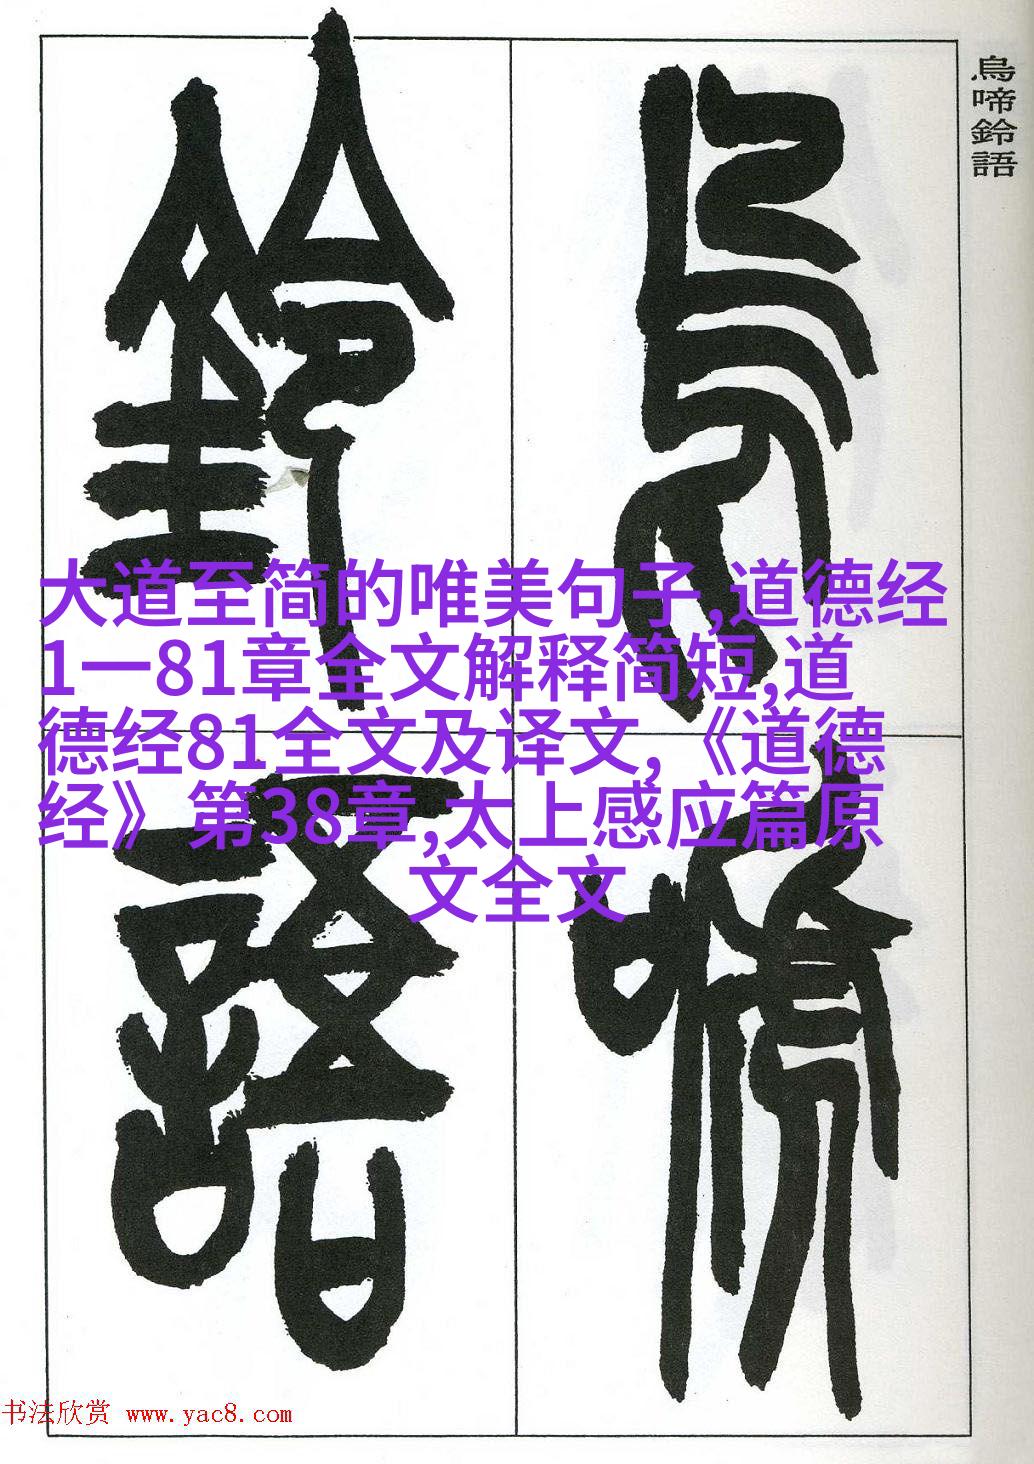 鳥啼鈴語
鳥啼
鈴語
大道至简的唯美句子,道德经
1一81章全文解释简短,道
德经81全文及译文,《道德
经》第38章,太上感应篇原
文全文
书法欣赏 www.yac8.com